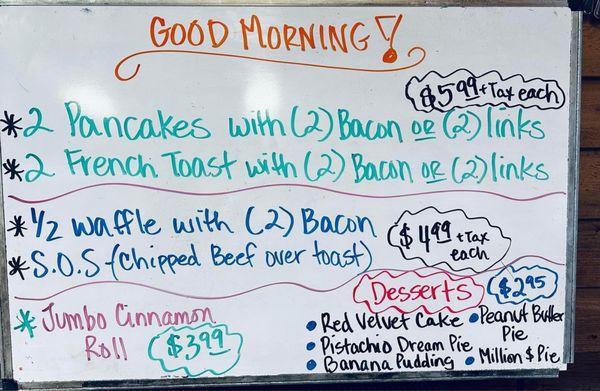 GOOD MORNING!
$5.99 + Tax each
* 2 Pancakes with (2) Bacon or (2) links
* 2 French Toast with (2) Bacon or (2) links
* 1/2 waffle with (2) Bacon
* S.O.S - (Chipped Beef over toast)
$4.99 + Tax
each
Desserts $2.95
* Jumbo Cinnamon
Roll
$3.99
• Red Velvet Cake
• Pistachio Dream Pie
• Banana Pudding
• Peanut Butter
Pie
• Million $ Pie